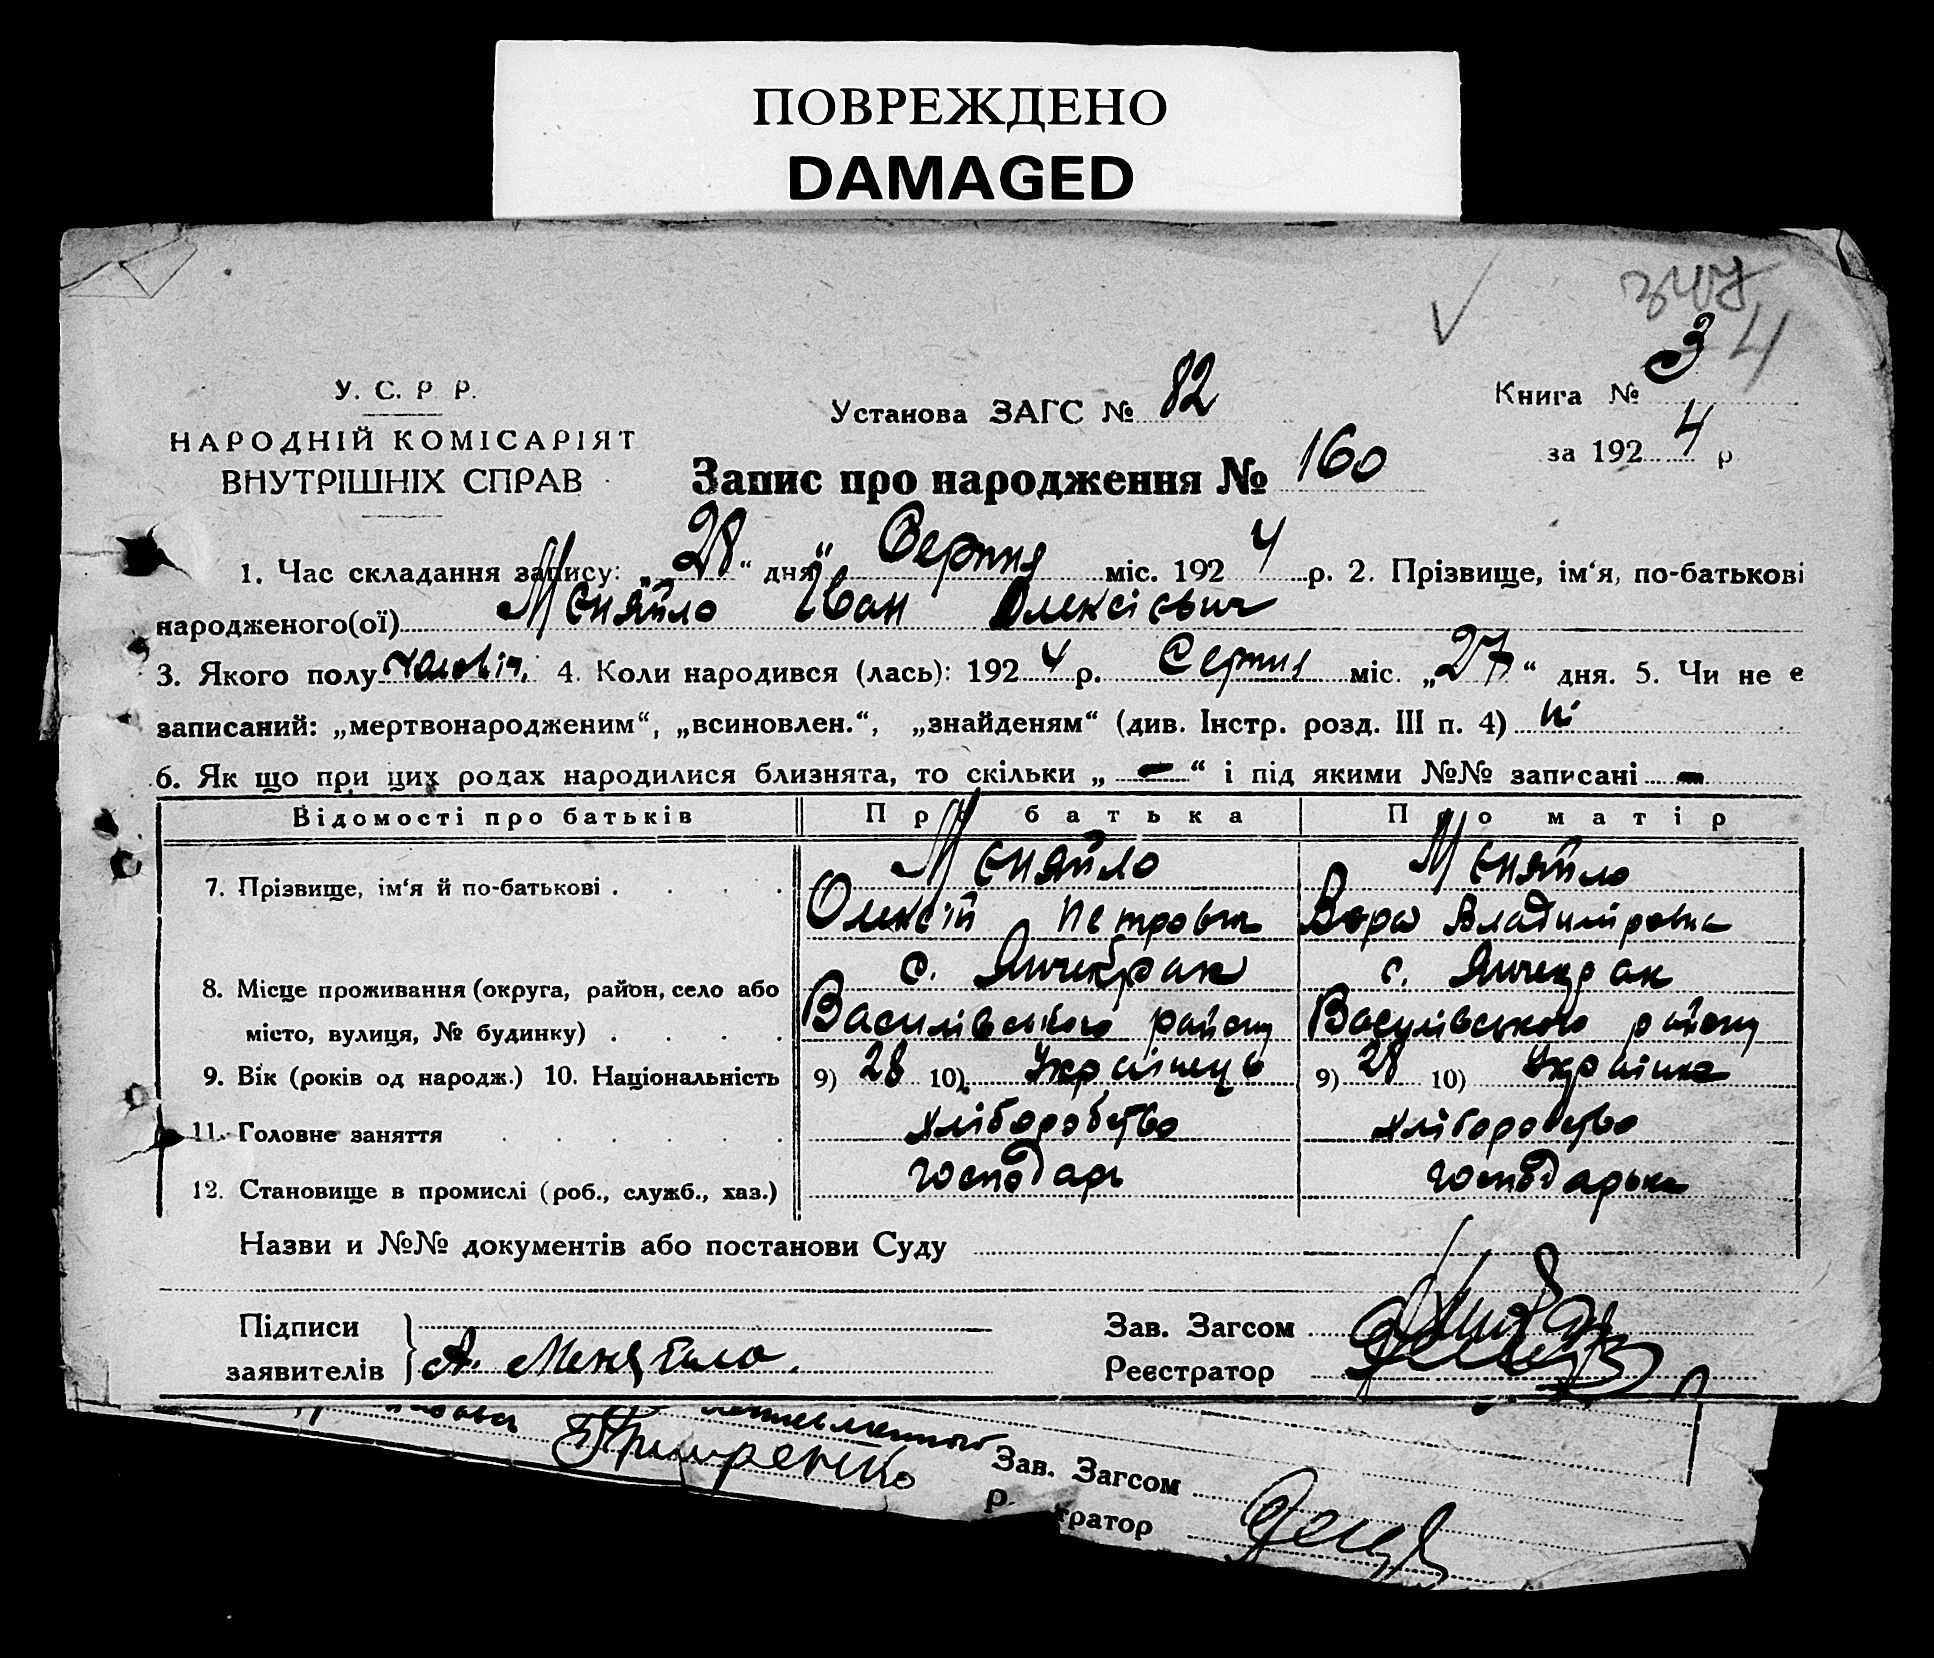 ПОВРЕЖДЕНО
DAMAGED
347
4
У. С. Р. Р.
НАРОДНІЙ КОМІСАРІЯТ
ВНУТРІШНІХ СПРАВ
Установа ЗАГС № 82
Книга № 3
за 1924 р
Запис про народження № 160
1. Час складання запису: „28“ дня „ Серпня міс. 1924 р. 2. Прізвище, ім‘я, по-батькові
народженого(ої) Меняйло Іван Олексієвич
3. Якого полу чоловіч. 4. Коли народився (лась): 1924 р. Серпня міс. „27“ дня. 5. Чи не є
записаний: „мертвонародженим“, „всиновлен.“, „знайденям“ (див. Інстр. розд. III п. 4) ні
6. Як що при цих родах народилися близнята, то скільки „ — “ і під якими №№ записані —
Відомості про батьків Про батька Про матір
7. Прізвище, ім‘я й по-батькові Меняйло Меняйло
Олексій Петрович Вера Владиміровна
с. Янчекрак с. Янчекрак
8. Місце проживання (округа, район, село або
місто, вулиця, № будинку) Василівського району Василівського району
9. Вік (років од народж.) 10. Національність 9) 28 10) Українець 9) 28 10) Українка
11. Головне заняття хліборобство хліборобство
12. Становище в промислі (роб., служб., хаз.) господарь господарька
Назви и №№ документів або постанови Суду
Підписи
заявителів А. Меняйло.
Зав. Загсом
Реєстратор
Зав. Загсом
тратор